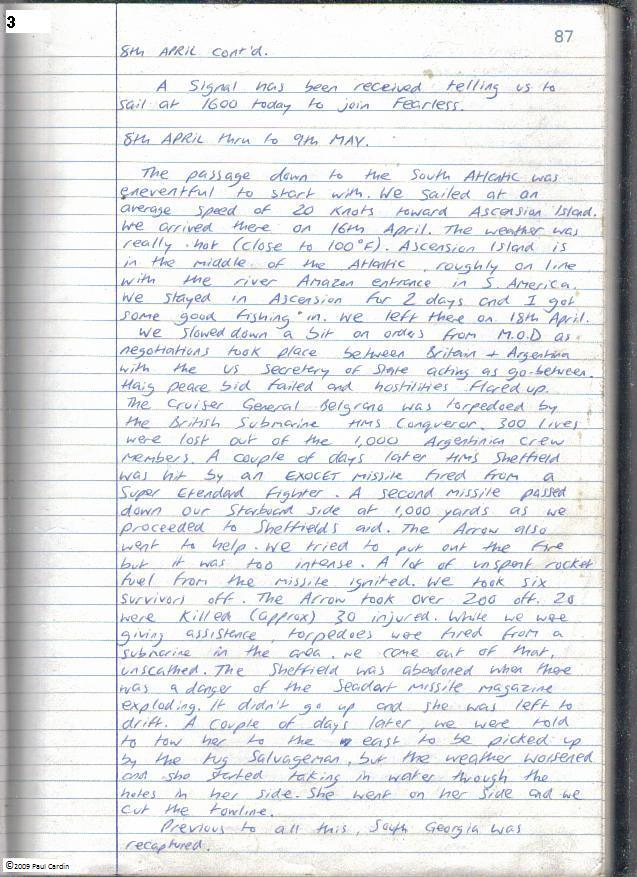 3
87
8th APRIL cont'd.
A signal has been received telling us to
sail at 1600 today to join Fearless.
8th APRIL thru to 9th MAY.
The passage down to the South Atlantic was
eneventful to start with. We sailed at an
average speed of 20 knots toward Ascension Island.
We arrived there on 16th April. The weather was
really hot (close to 100°F). Ascension Island is
in the middle of the Atlantic, roughly on line
with the river Amazon entrance in S. America.
We stayed in Ascension for 2 days and I got
some good fishing in. We left there on 18th April.
We slowed down a bit on orders from M.O.D as
negotiations took place between Britain + Argentina
with the US Secretary of State acting as go-between.
Haig peace bid failed and hostilities flared up.
The Cruiser General Belgrano was torpedoed by
the British Submarine HMS Conqueror. 300 lives
were lost out of the 1,000 Argentinian crew
members. A couple of days later HMS Sheffield
was hit by an EXOCET missile fired from a
Super Etendard Fighter. A second missile passed
down our Starboard side at 1,000 yards as we
proceeded to Sheffields aid. The Arrow also
went to help. We tried to put out the fire
but it was too intense. A lot of unspent rocket
fuel from the missile ignited. We took six
survivors off. The Arrow took over 200 off. 20
were killed (approx) 30 injured. While we were
giving assistance, torpedoes were fired from a
submarine in the area. We came out of that,
unscathed. The Sheffield was abandoned when there
was a danger of the Seadart missile magazine
exploding. It didn't go up and she was left to
drift. A couple of days later, we were told
to tow her to the east to be picked up
by the tug Salvageman, but the weather worsened
and she started taking in water through the
holes in her side. She went on her side and we
cut the towline.
Previous to all this, South Georgia was
recaptured.
©2009 Paul Cardin